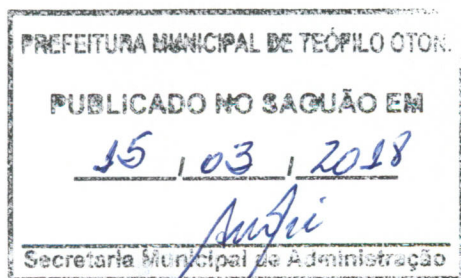 PREFEITURA MUNICIPAL DE TEÓFILO OTONI
PUBLICADO NO SAGUÃO EM
15 / 03 / 2018
Secretaria Municipal de Administração